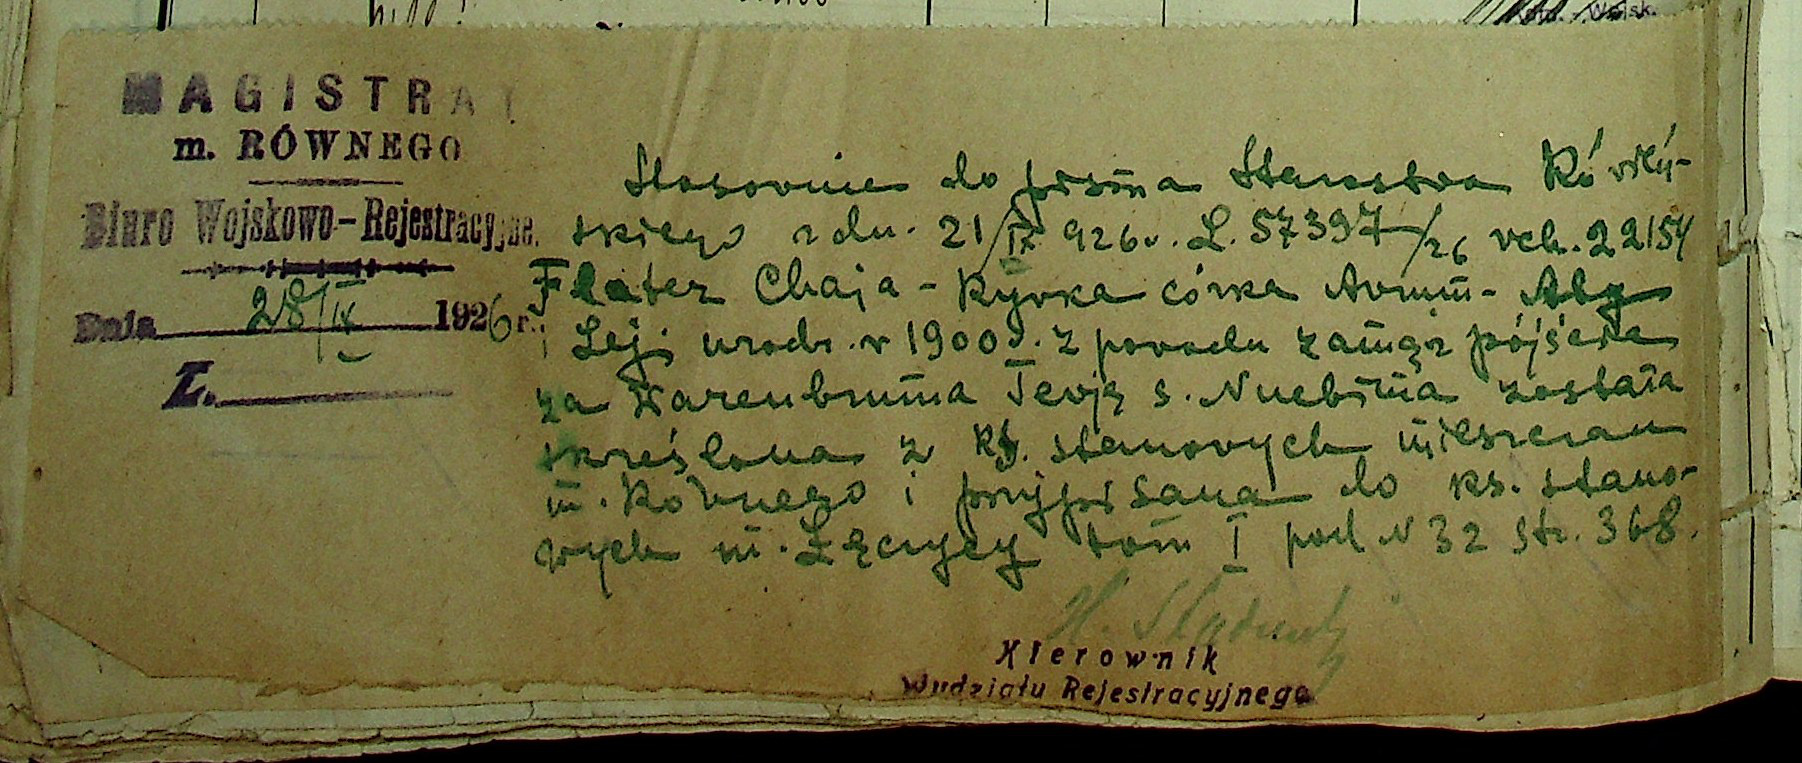 MAGISTRAT
m. RÓWNEGO
Biuro Wojskowo-Rejestracyjne.
Dnia 28/IX 1926 r.
L.
Stosownie do pisma Starostwa Rówień-
skiego z dn. 21/IX 926 r. L. 57397/26 wch. 22154
Flater Chaja-Rywka córka Avrum-Aby
i Leji urodz. w 1900 r. z powodu zamąż pójścia
za Warenbruma Tevję s. Nuchima została
skreślona z ks. stanowych mieszczan
m. Równego i przypisana do ks. stano-
wych m. Łęczycy tom I pod N 32 str. 368.
Kierownik
Wydziału Rejestracyjnego